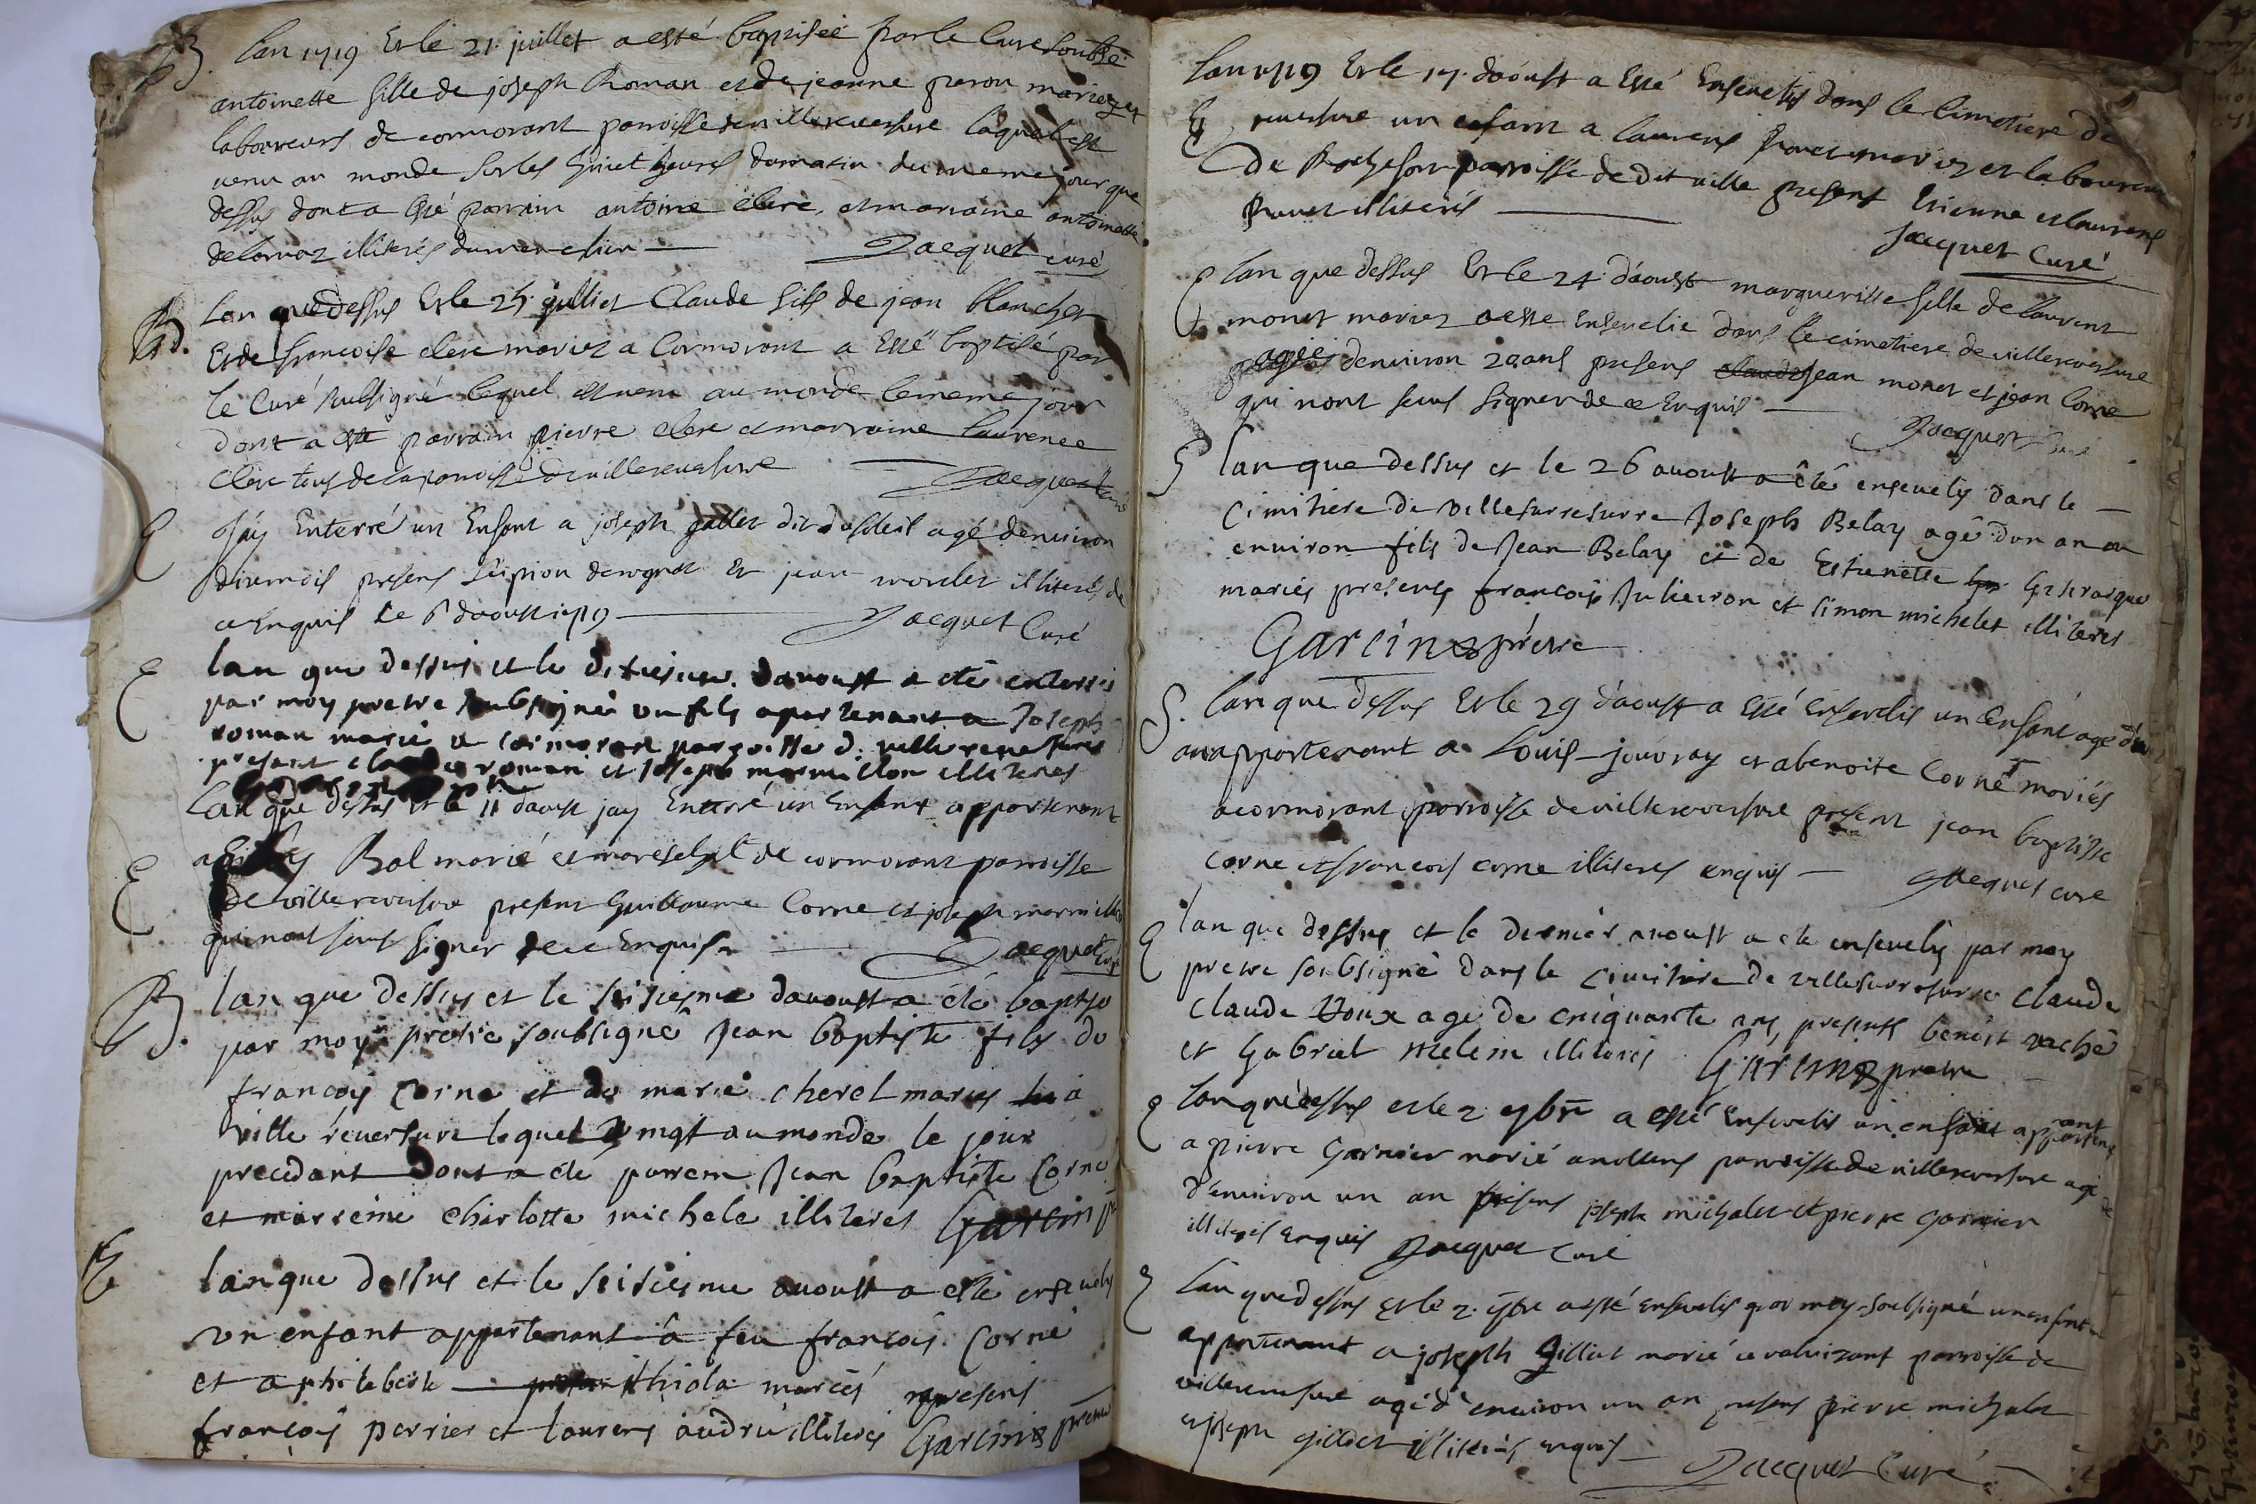 B. Lan 1719 Et le 21 juillet a esté baptisée par le Curé soubsé
antoinette fille de joseph Roman et de jeanne peron mariez et
laboureurs de cormorant parroisse de villereversure laquelle est
venu au monde sur les huict heures du matin du meme jour que
dessus dont a esté parrain antoine clerc, et marraine antoinette
illiterés
Jacquet curé
B. Lan que dessus Et le 25 julliet Claude fils de jean blanchet
Et de francoise clerc mariez a Cormorant a Esté baptisé par
le Curé soubsigné lequel est venu au monde le meme jour
dont a esté parrain pierre clerc et marraine laurence
clerc tous de la parroisse de villereversure
Jacquet curé
E Jay Enterré un Enfant a joseph gallet dit agé denviron
dixmois presens et jean illiterés de
ce Enquis le 6 daoust 1719
Jacquet Curé
E lan que dessus et le dixiesme davoust a eté enterré
par moy pretre soubsigné un fils apartenant a Joseph
roman marié a cormorant parroisse d. villereversure
present claude roman et Joseph marmillon illiteres
Lan que dessus et le 11 daoust jay Enterré un Enfant appartenant
E a Bal marié et mareschal de cormorant parroisse
de villereversure present Guillaume Corne et joseph marmillon
qui nont seus signer de ce Enquis
Jacquet curé
B. lan que dessus et le seisiesme davoust a été baptise
par moy pretre soubsigné Jean baptiste fils de
françois Corne et de marie cherel maries a
ville reversure lequel vingt au monde le jour
precedant dont a été parrem Jean baptiste Corne
et marreine charlotte michele illiteres Garcin p
E lan que dessus et le seisiesme avoust a esté ensevely
vn enfant appartenant â feu françois Corne
et a philiberte thiola mariés presens
françois perrier et laurens audru illiteres Garcin pretre
Lan 1719 Et le 17. daoust a Esté Ensevelis dans le Cimetiere de
E reversure un enfant a laurens marié et laboureur
de Rochefort parroisse de dit ville present Etienne et laurens
illiterés
Jacquet Curé
E lan que dessus Et le 24 d'aoust margueritte fille de laurent
monet mariez a esté Ensevelie dans le cimetiere de villereversure
agée denviron 20 ans presens jean monet et jean Corne
qui nont seus signer de ce Enquis
Jacquet curé
S lan que dessus et le 26 avoust a été ensevely dans le
Cimitiere de villesurresurre Joseph Belay agé d'un an ou
environ fils de Jean Belay et de Estienette
mariés presens françois Julieiron et simon michelet illiteres
Garcin pretre
S. lan que dessus Et le 29 d'aoust a Esté Ensevelis un Enfant agé d'un
an appartenant a Louis jouvray et a benoite Corne mariés
a cormorant parroisse de villereversure present jean baptiste
corne et francois corne illiterés enquis Jacquet curé
E lan que dessus et le dernier avoust a ete ensevely par moy
pretre soubsigné dans le cimitiere de villesurresurre Claude
Claude Doux agé de cinquante ans presents benoit vaché
et Gabriel Melem illiteres Garcin pretre
E lan que dessus et le 2 7bre a esté Ensevelis un enfant appartenant
a pierre Garnier marié parroisse de villereversure agé
d'environ un an presens joseph michalet et pierre garnier
illiterés enquis Jacquet curé
E Lan que dessus Et le 2. 7bre a esté Ensevelis par moy soubsigné un enfant
appartenant a joseph gilliet marié parroisse de
villereversure agé d'environ un an presens pierre michalet
et joseph illiterés enquis
Jacquet Curé